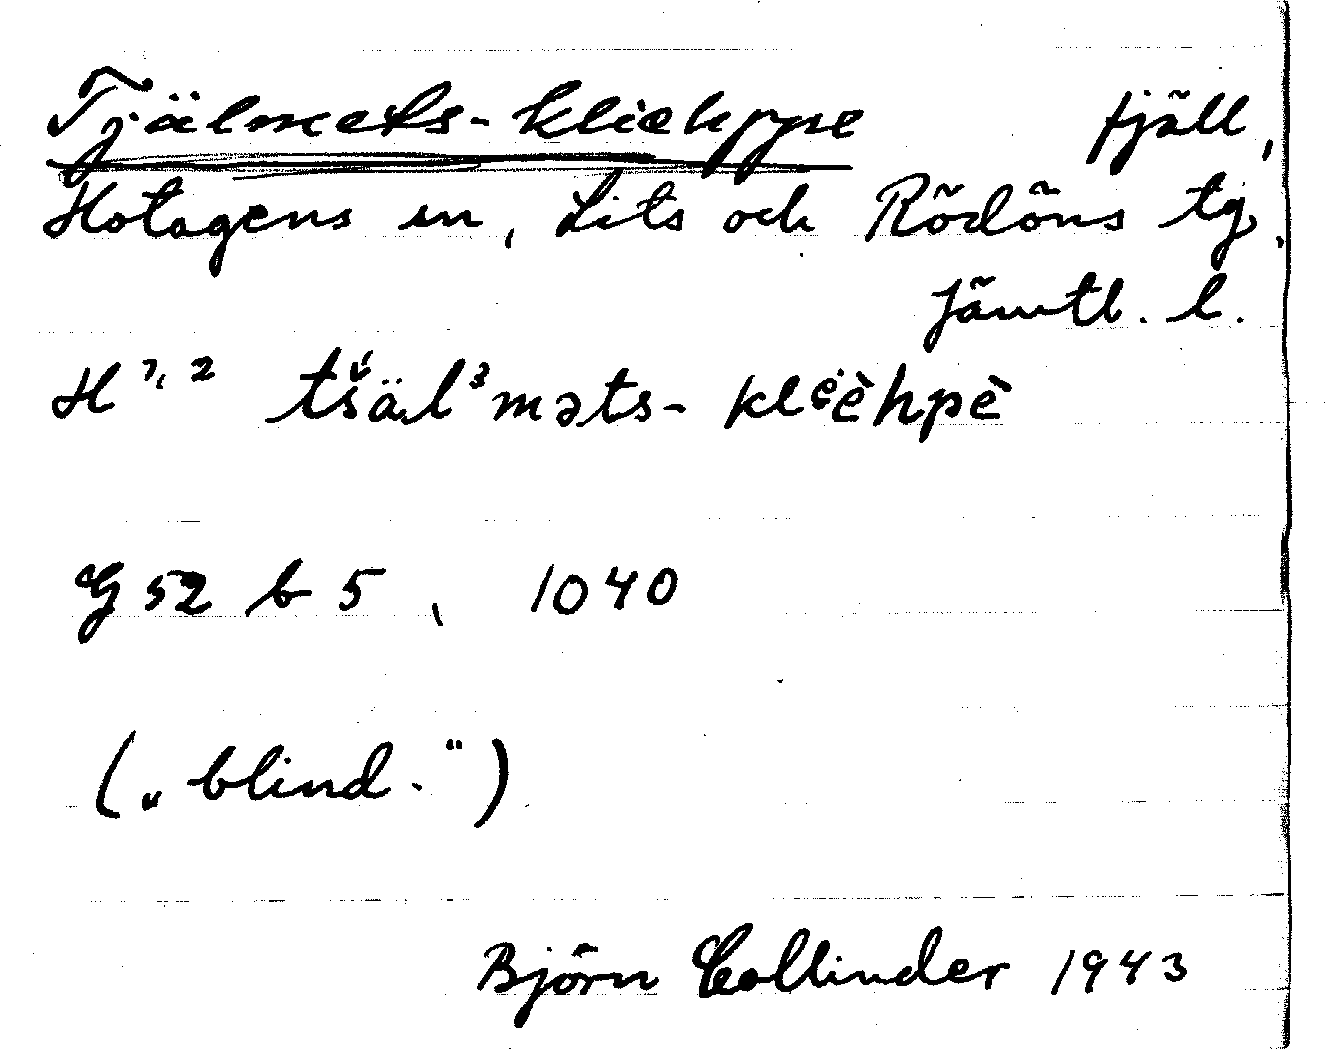 Tjälmets-kliehppe fjäll,
Hotagens sn, Lits och Rödöns tg,
Jämtl. l.
H 1, 2 tšäl³məts- klèhpè
G 52 b 5, 1040
(„blind-“)
Björn Collinder 1943